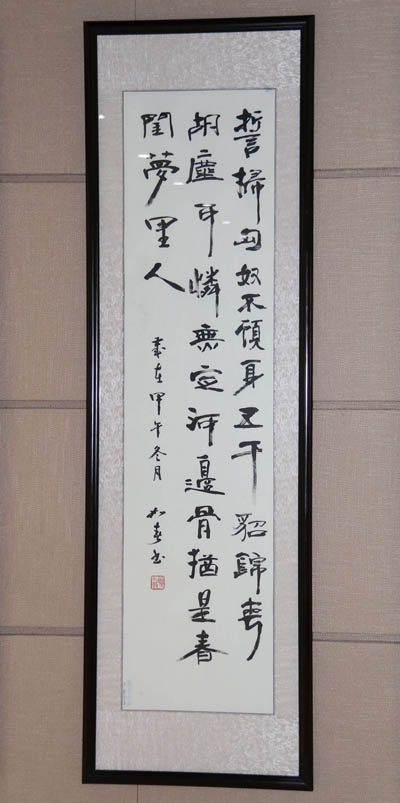 誓掃匈奴不顧身五千貂錦喪
胡塵可憐無定河邊骨猶是春
閨夢里人
歲在甲午冬月
书